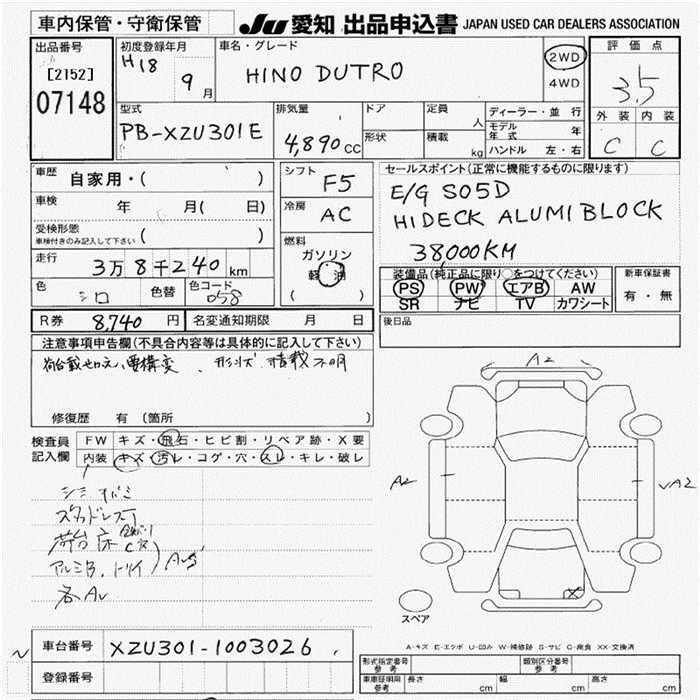 車内保管・守衛保管
JU 愛知 出品申込書 JAPAN USED CAR DEALERS ASSOCIATION
出品番号
[2152]
07148
初度登録年月
H18
9月
車名・グレード
HINO DUTRO
2WD
4WD
評価点
3.5
外装 内装
C C
型式
PB-XZU301E
排気量
4,890cc
ドア
形状
定員 人
積載 kg
ディーラー・並行
モデル年式 年
ハンドル 左・右
車歴 自家用・( )
車検 年 月( 日)
受検形態
車検付きのみ記入して下さい ( )
走行 3万8千240km
色 シロ
色替
色コード 058
R券 8,740円
名変通知期限 月 日
シフト F5
冷房 AC
燃料
ガソリン
軽油
( )
セールスポイント(正常に機能するものに限ります)
E/G S05D
HIDECK ALUMI BLOCK
38,000KM
装備品(純正品に限り○をつけてください)
PS PW エアB AW
SR ナビ TV カワシート
新車保証書
有・無
後日品
注意事項申告欄(不具合内容等は具体的に記入して下さい)
形状 積載 不明
修復歴 有(箇所 )
検査員
記入欄
FW キズ・飛石・ヒビ割・リペア跡・X要
内装 キズ・汚レ・コゲ・穴・スレ・キレ・破レ
荷台床
アルミB
A2
A2
A2
X
スペア
A-キズ E-エクボ U-凹み W-補修跡 S-サビ C-腐食 XX-交換済
車台番号 XZU301-1003026
登録番号
型式指定番号
参考
類別区分番号
参考
車庫証明用
参考
長さ cm
幅 cm
高さ cm